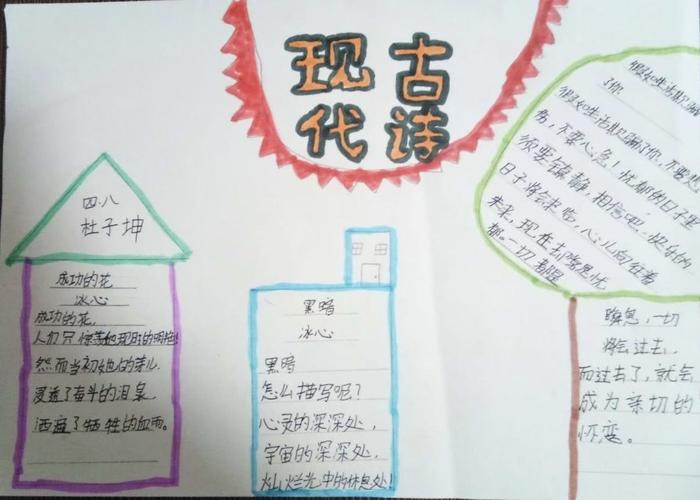 现代
古诗
四.八
杜子坤
成功的花
冰心
成功的花,
人们只惊羡她现时的明艳!
然而当初她的芽儿,
浸透了奋斗的泪泉,
洒遍了牺牲的血雨。
黑暗
冰心
黑暗
怎么描写呢?
心灵的深深处,
宇宙的深深处,
灿烂光中的休息处!
假如生活欺
了你
假如生活欺骗了你,不要悲
伤,不要心急!忧郁的日子里
须要镇静,相信吧,快乐的
日子将会来临,心儿向往着
未来,现在却常是忧
郁。一切都是
瞬息,一切
将会过去,
而过去了,就会
成为亲切的
怀恋。